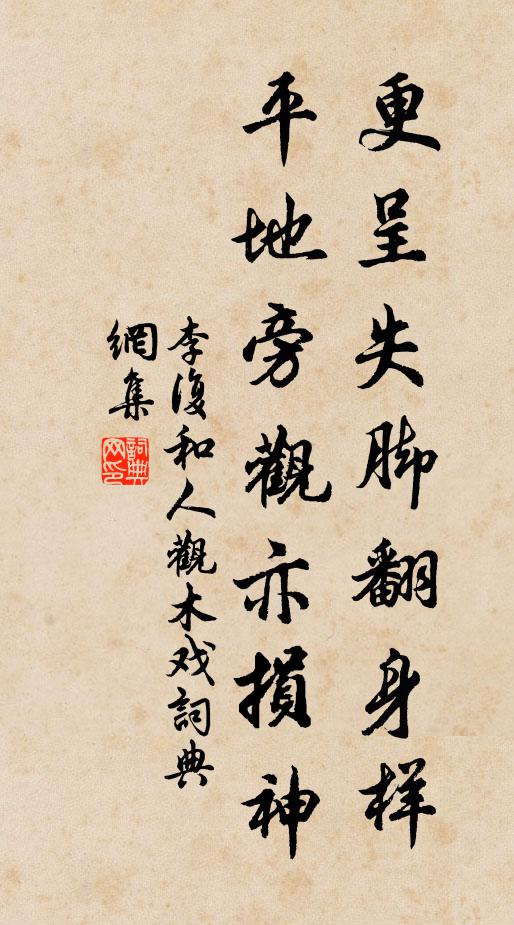 更呈失脚翻身样
平地旁觀亦損神
李復和人觀木戏詞典
網集
詞典
网印